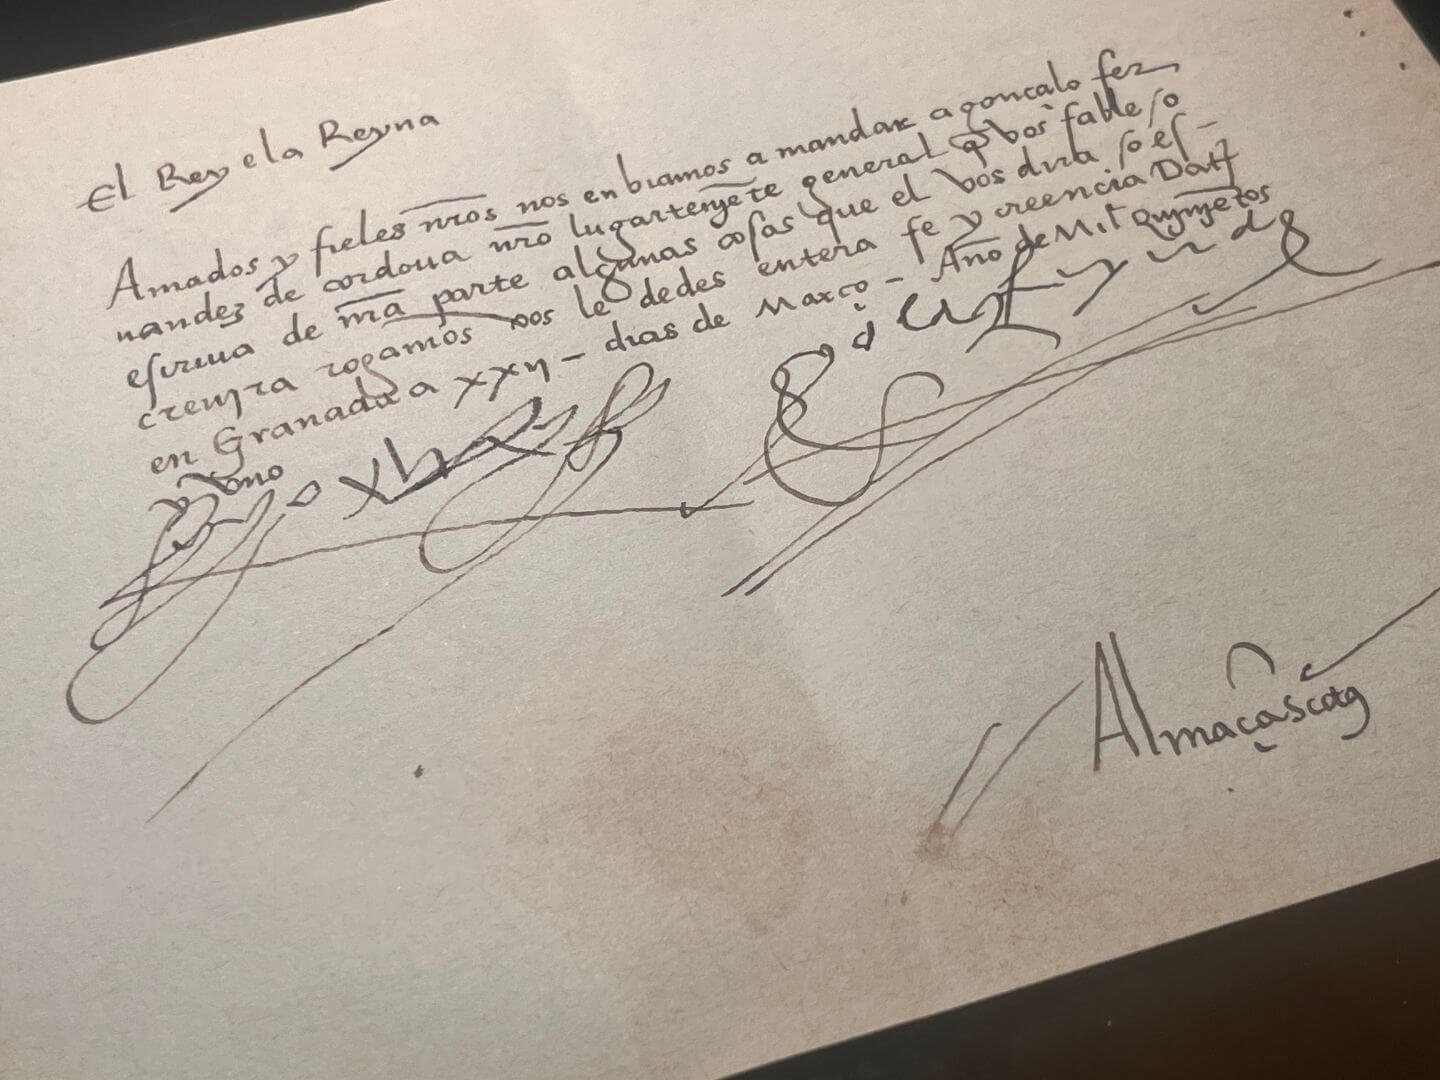 El Rey e la Reyna
Amados y fieles nr̅os nos enbiamos a mandar a goncalo fer
nandez de cordoua nr̅o lugartenje̅te general q̅ vos fable o
escriua de nr̅a parte algunas cosas que el vos dira o es-
creujra rogamos vos le dedes entera fe y creencia Dat
en Granada a xxij - dias de Março - Año de Mil Qujnje̅tos
y vno
Almaçã